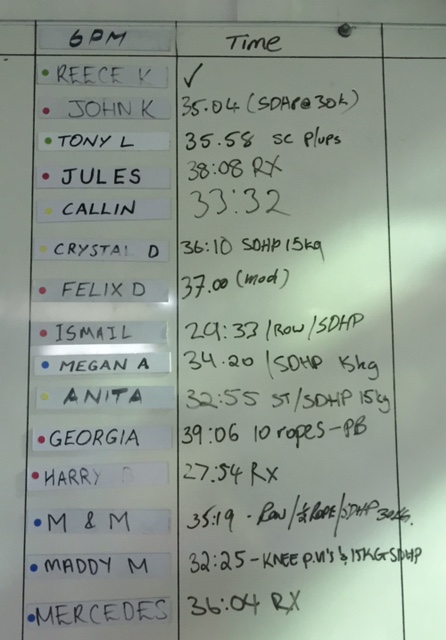 6PM Time
REECE K ✓
JOHN K 35.04 (SDHP@30k)
TONY L 35.58 SC P/ups
JULES 38:08 RX
CALLIN 33:32
CRYSTAL D 36:10 SDHP 15kg
FELIX D 37.00 (mod)
ISMAIL 29:33 /ROW/SDHP
MEGAN A 34.20 /SDHP 15kg
ANITA 32:55 ST/SDHP 15kg
GEORGIA 39:06 10 ropes-PB
HARRY 27:54 RX
M & M 35:19 - ROW/½ ROPE/SDHP 30KG.
MADDY M 32:25-KNEE P.U's & 15KG SDHP
MERCEDES 36:04 RX